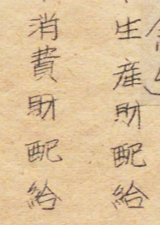 生産財配給
消費財配給